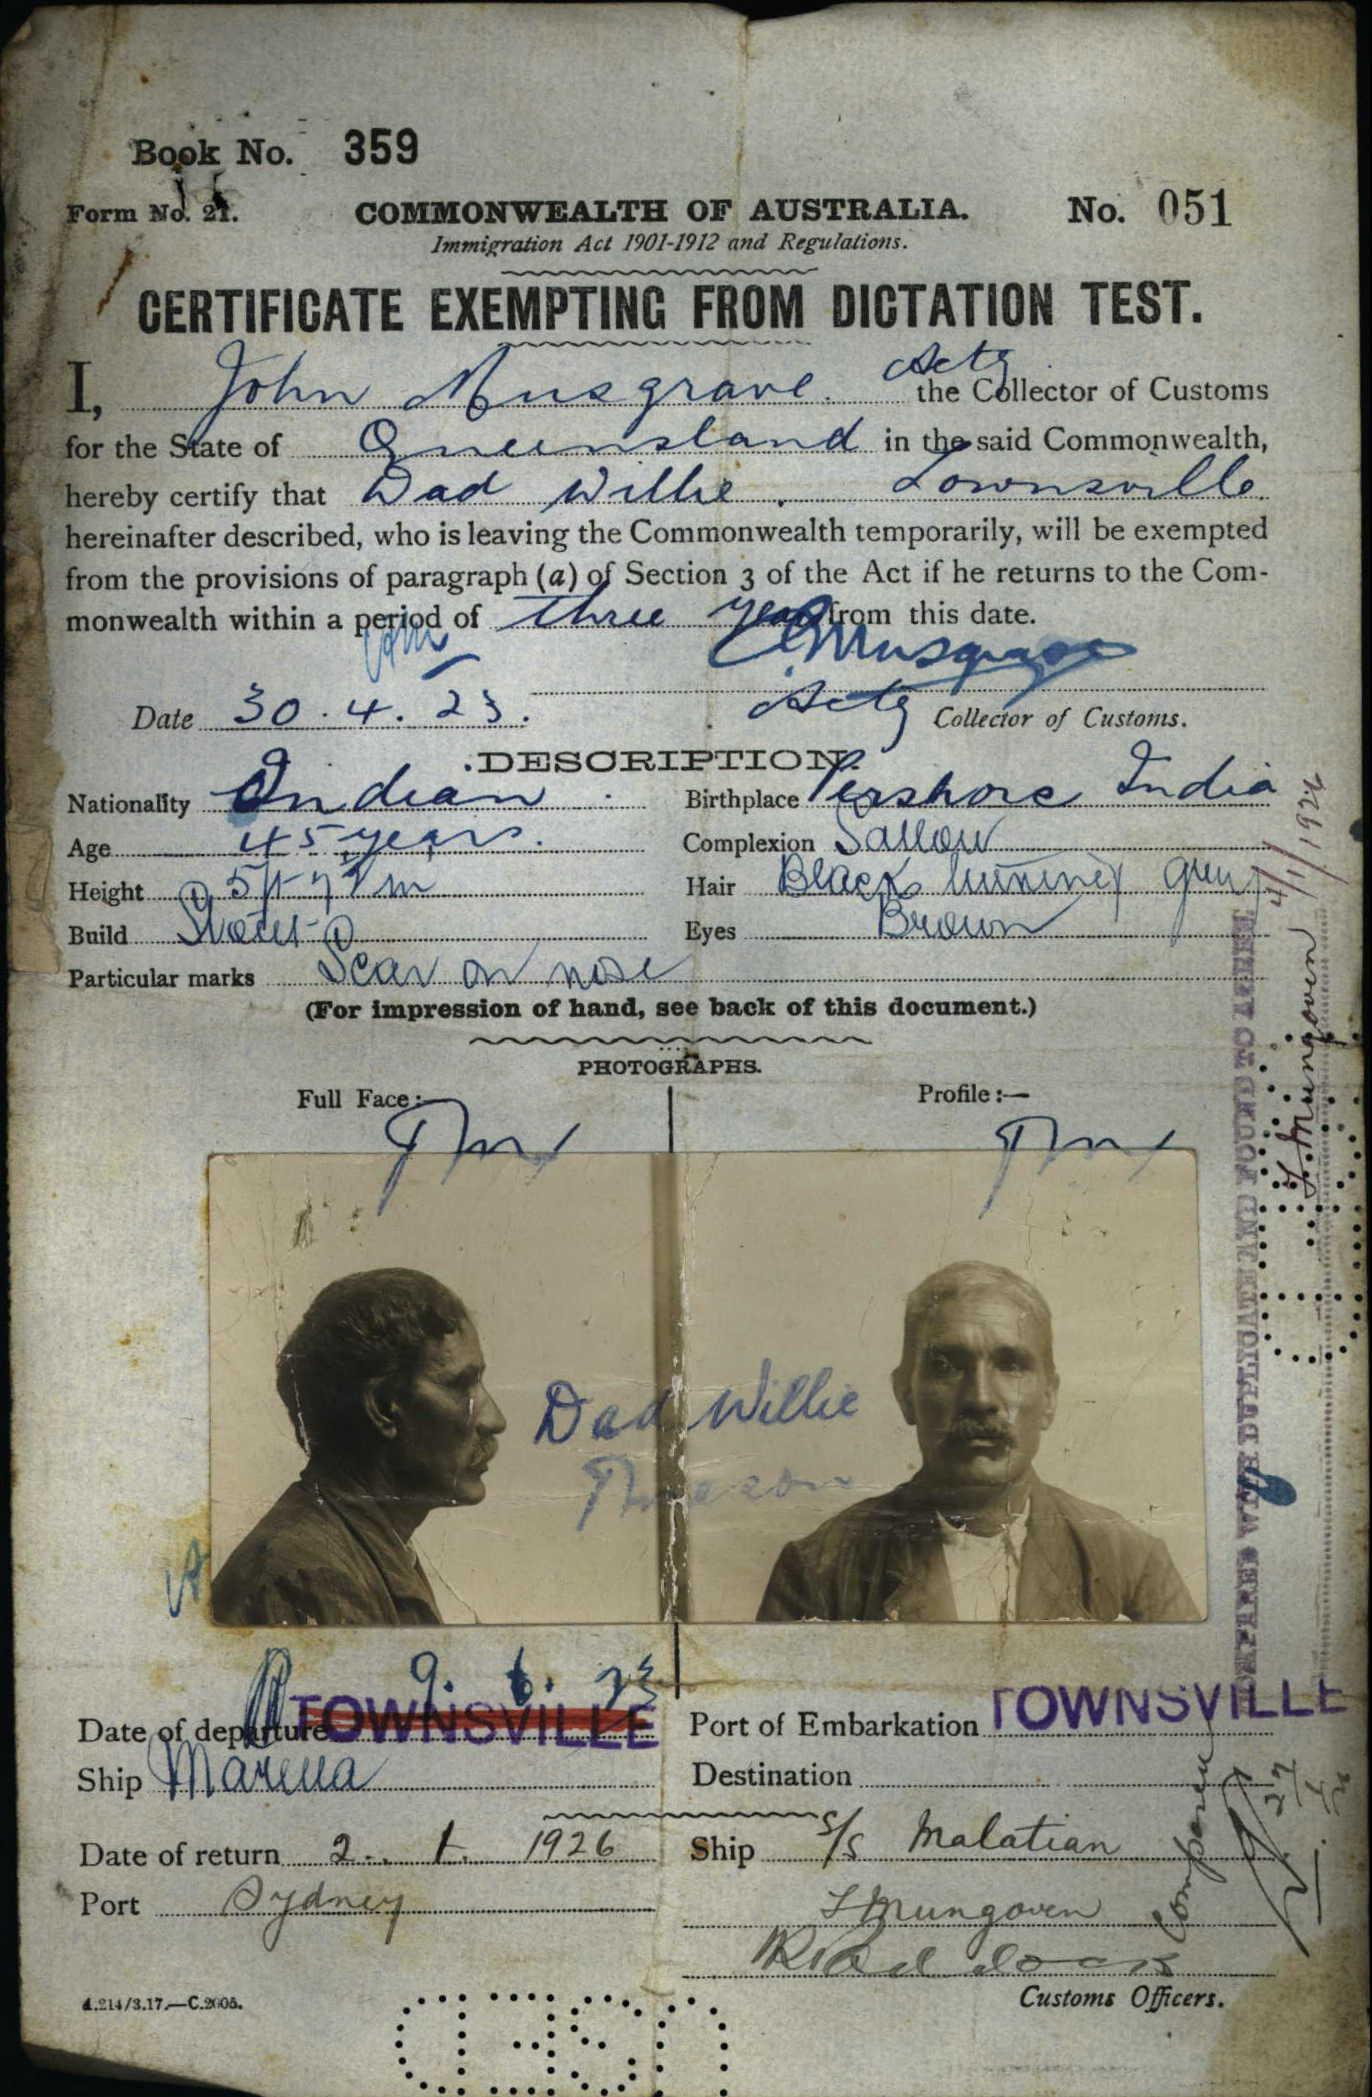 Book No. 359
Form No. 21. COMMONWEALTH OF AUSTRALIA. No. 051
Immigration Act 1901-1912 and Regulations.
CERTIFICATE EXEMPTING FROM DICTATION TEST.
I, John Musgrave. Actg the Collector of Customs
for the State of Queensland in the said Commonwealth,
hereby certify that Dad Willie. Townsville
hereinafter described, who is leaving the Commonwealth temporarily, will be exempted
from the provisions of paragraph (a) of Section 3 of the Act if he returns to the Com-
monwealth within a period of three years from this date.
Musgrave
Date 30.4.23. Actg Collector of Customs.
DESCRIPTION.
Nationality Indian Birthplace Pershore India
Age 45 years. Complexion Sallow
Height 5ft 7 in Hair Black turning grey
Build Stout Eyes Brown
Particular marks Scar on nose
(For impression of hand, see back of this document.)
PHOTOGRAPHS.
Full Face:— Profile:—
Dad Willie
9. 6. 23
Date of departure TOWNSVILLE Port of Embarkation TOWNSVILLE
Ship Marella Destination
Date of return 2. 1. 1926 Ship s/s Malatian
Port Sydney
T Mungoven
Customs Officers.
A.214/3.17.—C.2005.
Compared
CERTIFIED WITH DUPLICATE AND FOUND TO AGREE
T. Mungoven 4/1/1926